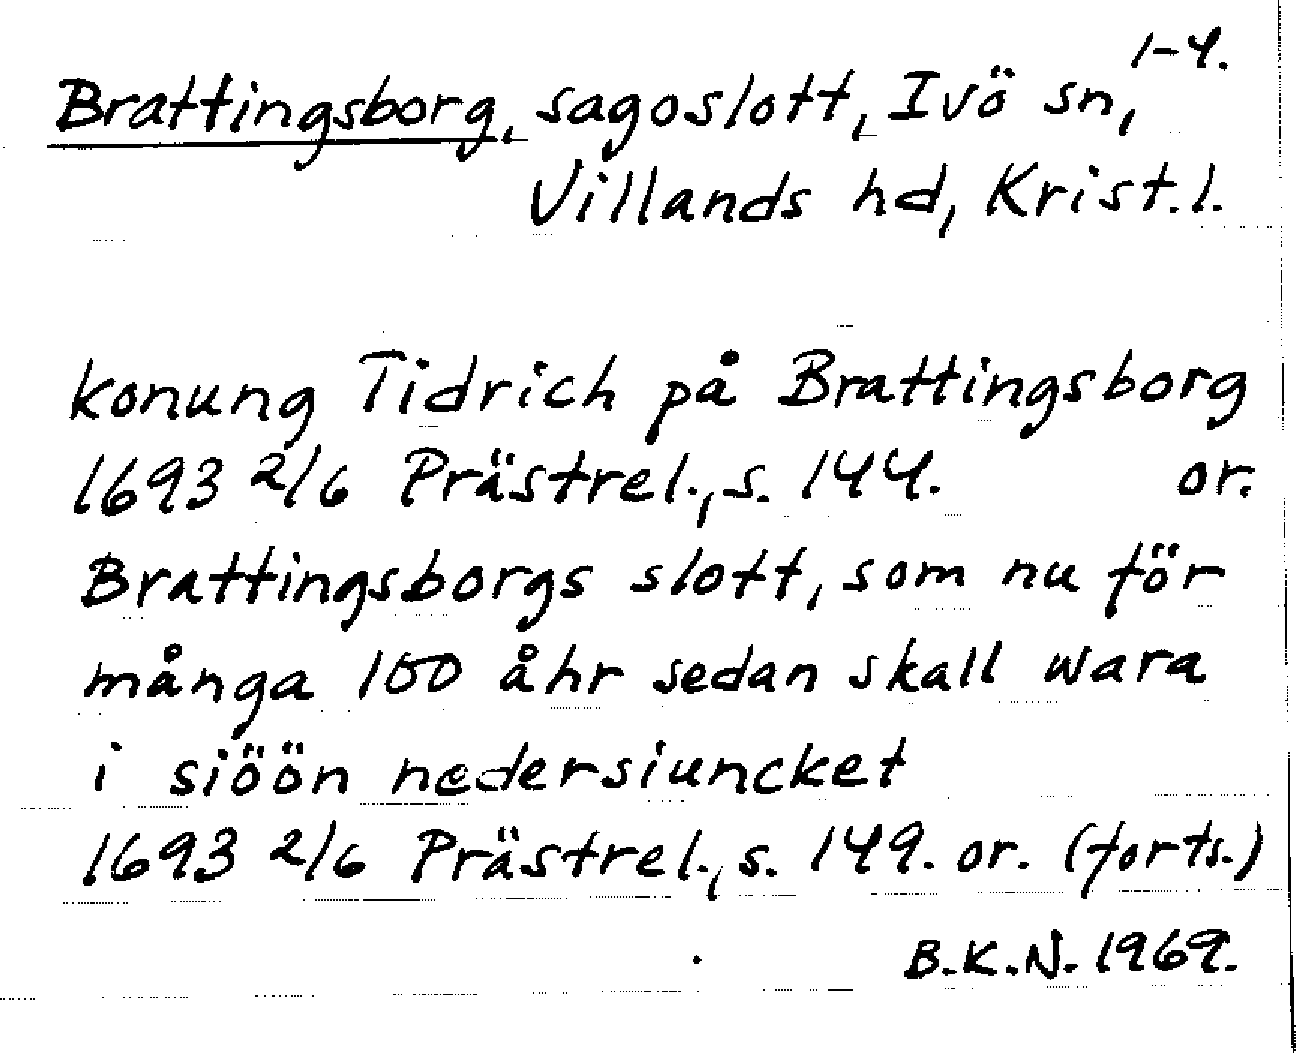 1-4.
Brattingsborg, sagoslott, Ivö sn,
Villands hd, Krist.l.
konung Tidrich på Brattingsborg
1693 2/6 Prästrel., s. 144. or.
Brattingsborgs slott, som nu för
många 100 åhr sedan skall wara
i siöön nedersiuncket
1693 2/6 Prästrel., s. 149. or. (forts.)
B.K.N. 1969.